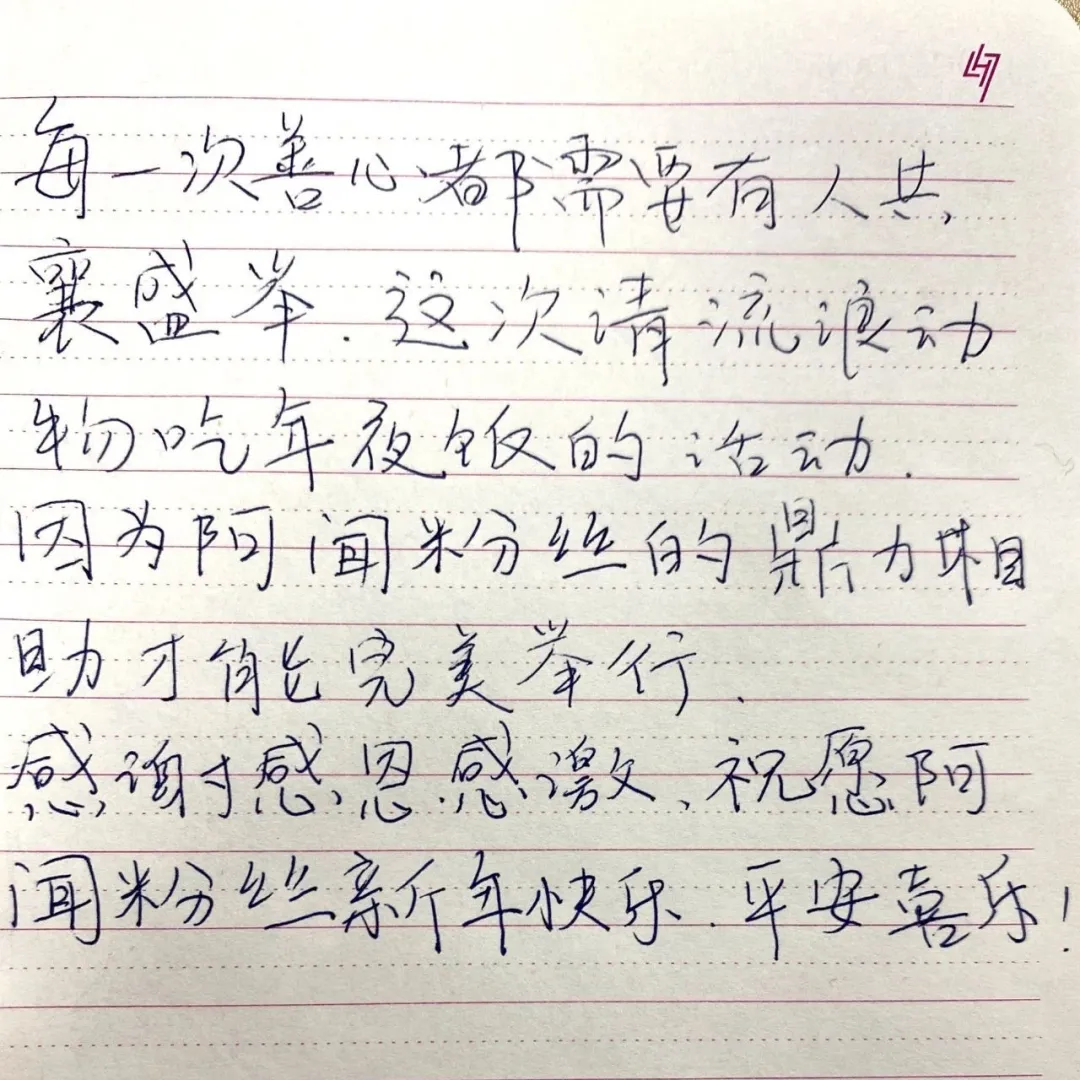 每一次善心都需要有人共
襄盛举.这次请流浪动
物吃年夜饭的活动.
因为阿闻粉丝的鼎力相
助才能完美举行.
感谢感恩感激、祝愿阿
闻粉丝新年快乐.平安喜乐!